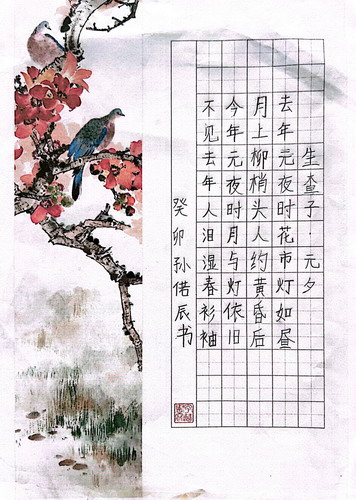 生查子·元夕
去年元夜时花市灯如昼
月上柳梢头人约黄昏后
今年元夜时月与灯依旧
不见去年人泪湿春衫袖
癸卯孙偌辰书